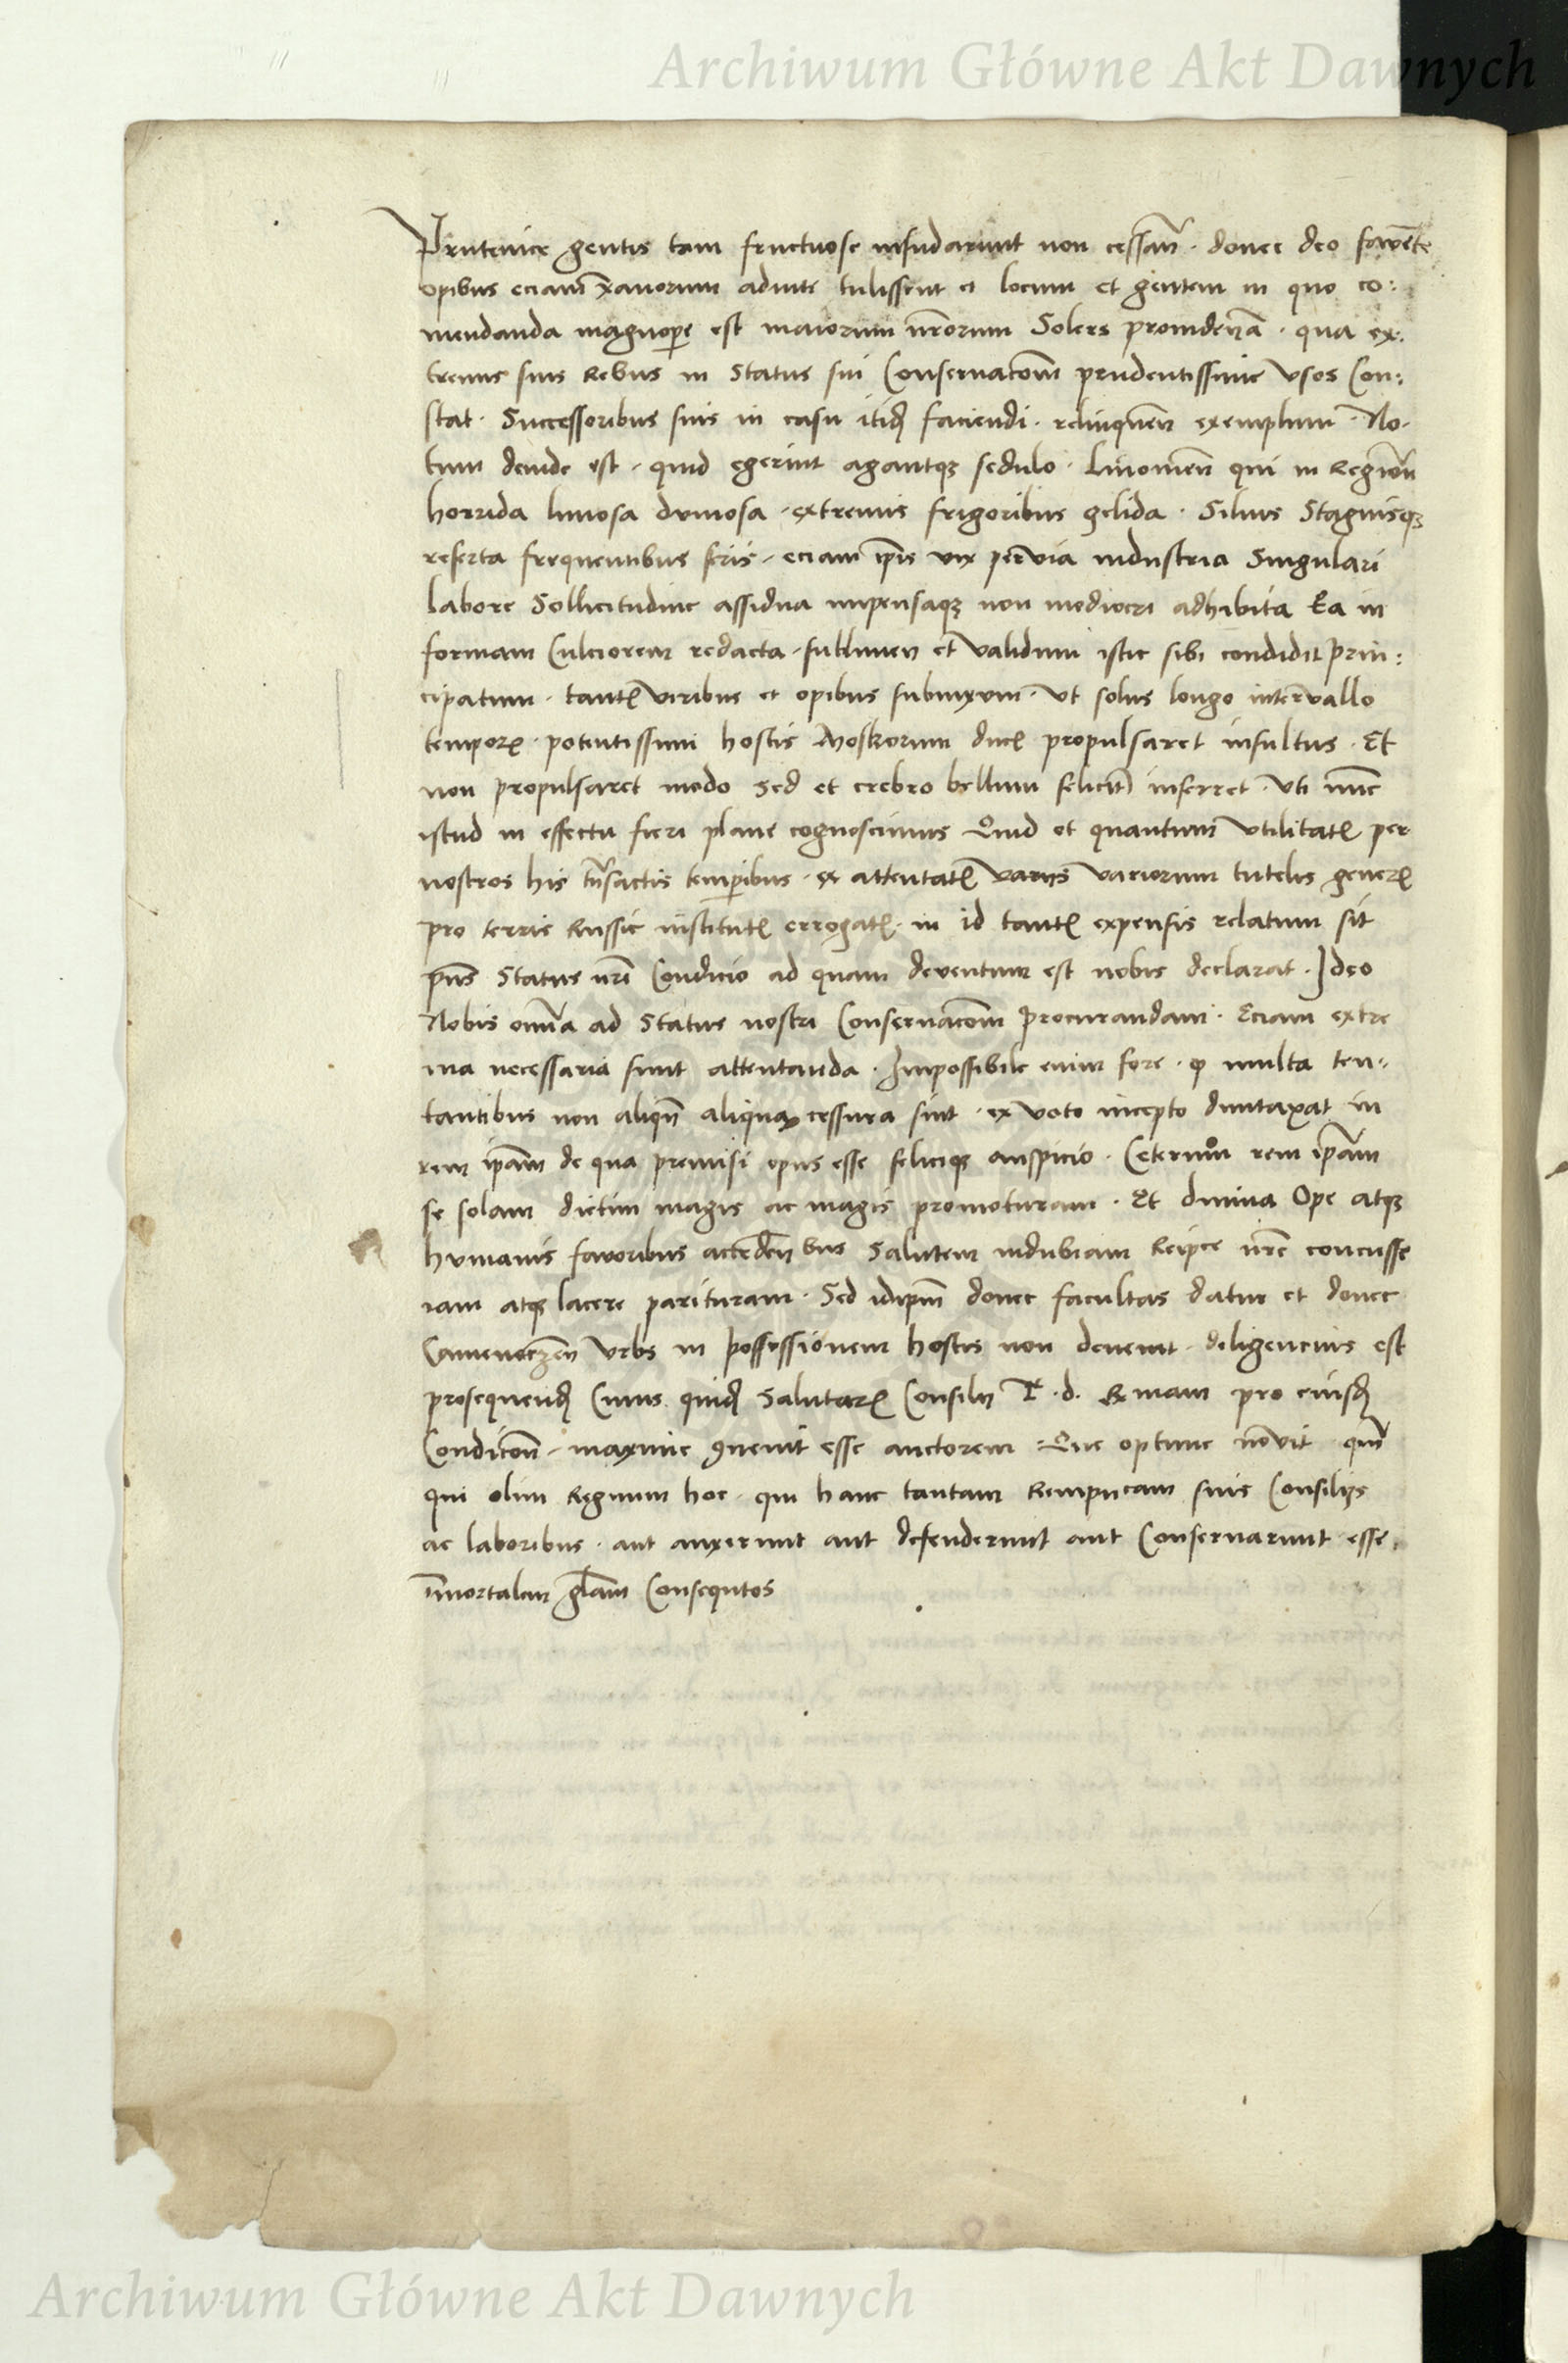 Archiwum Główne Akt Dawnych
Prutenice gentis tam fructuose insudarunt non cessań · donec deo favēte
opibus eciam x̄anorum adiute tulissent et locum et gentem in quo co:
mendanda magnope est maiorum nr̄orum Solers providencia · qua ex:
tremis suis Rebus in Status sui Conservacōem prudentissime vsos Con:
stat · Successoribus suis in casu itid faciendi · relinquen exemplum · No·
tum deinde est · quid egerint agantqz sedulo · Livonien qui in Region
horrida limosa dumosa · extremis frigoribus gelida · Silvis Stagnisqz
referta frequentibus feris · eciam ip̄is vix pervia industria Singulari
labore Sollicitudine assidua impensaqz non mediocri adhibita Ea in
formam Culciorem redacta · sublimen et validum istic sibi condidit prin:
cipatum · tant viribus et opibus submixum · vt solus longo intervallo
tempor · potentissimi hostis Moskorum duc propulsaret insultus · Et
non propulsaret modo Sed et crebro bellum felicit inferret · vti nunc
istud in effectu fieri plane cognoscimus Quid et quantum vtilitat per
nostros his tn̄sactis temp̄ibus · ex attentat varijs variorum tutelis gener
pro terris Russie institut errogat · in id tant expensis relatum sit
pn̄s Status nr̄i Condicio ad quam deventum est nobis declarat · Ideo
Nobis omia ad Status nostri Conservacōem procurandam · Eciam extre
ma necessaria sunt attentanda · Impossibile enim fore · q multa ten-
tantibus non aliqn aliqua cessura sint · ex voto incepto duntaxat in
rem ip̄am de qua premisi opus esse feliciqz auspicio · Ceterum rem ip̄am
se solam dietim magis ac magis promoturam · Et divina Ope atqz
humanis favoribus acceden bus Salutem indubiam Reipce nr̄e concusse
iam atqz lacere parituram · Sed idip̄m donec facultas datur et donec
Cameneczen Vrbs in possessionem hostis non devenit · diligencius est
prosequend Cuius quid Salutar Consilij T · d · Rmam pro eiusd
Condicōn · maxime 9venit esse auctorem Que optime novit qm̄
qui olim Regnum hoc · qui hanc tantam Rempucam suis Consilijs
ac laboribus · aut auxerunt aut defenderunt aut Conservarunt esse
im̄ortalem gl̄am Consequtos
Archiwum Główne Akt Dawnych